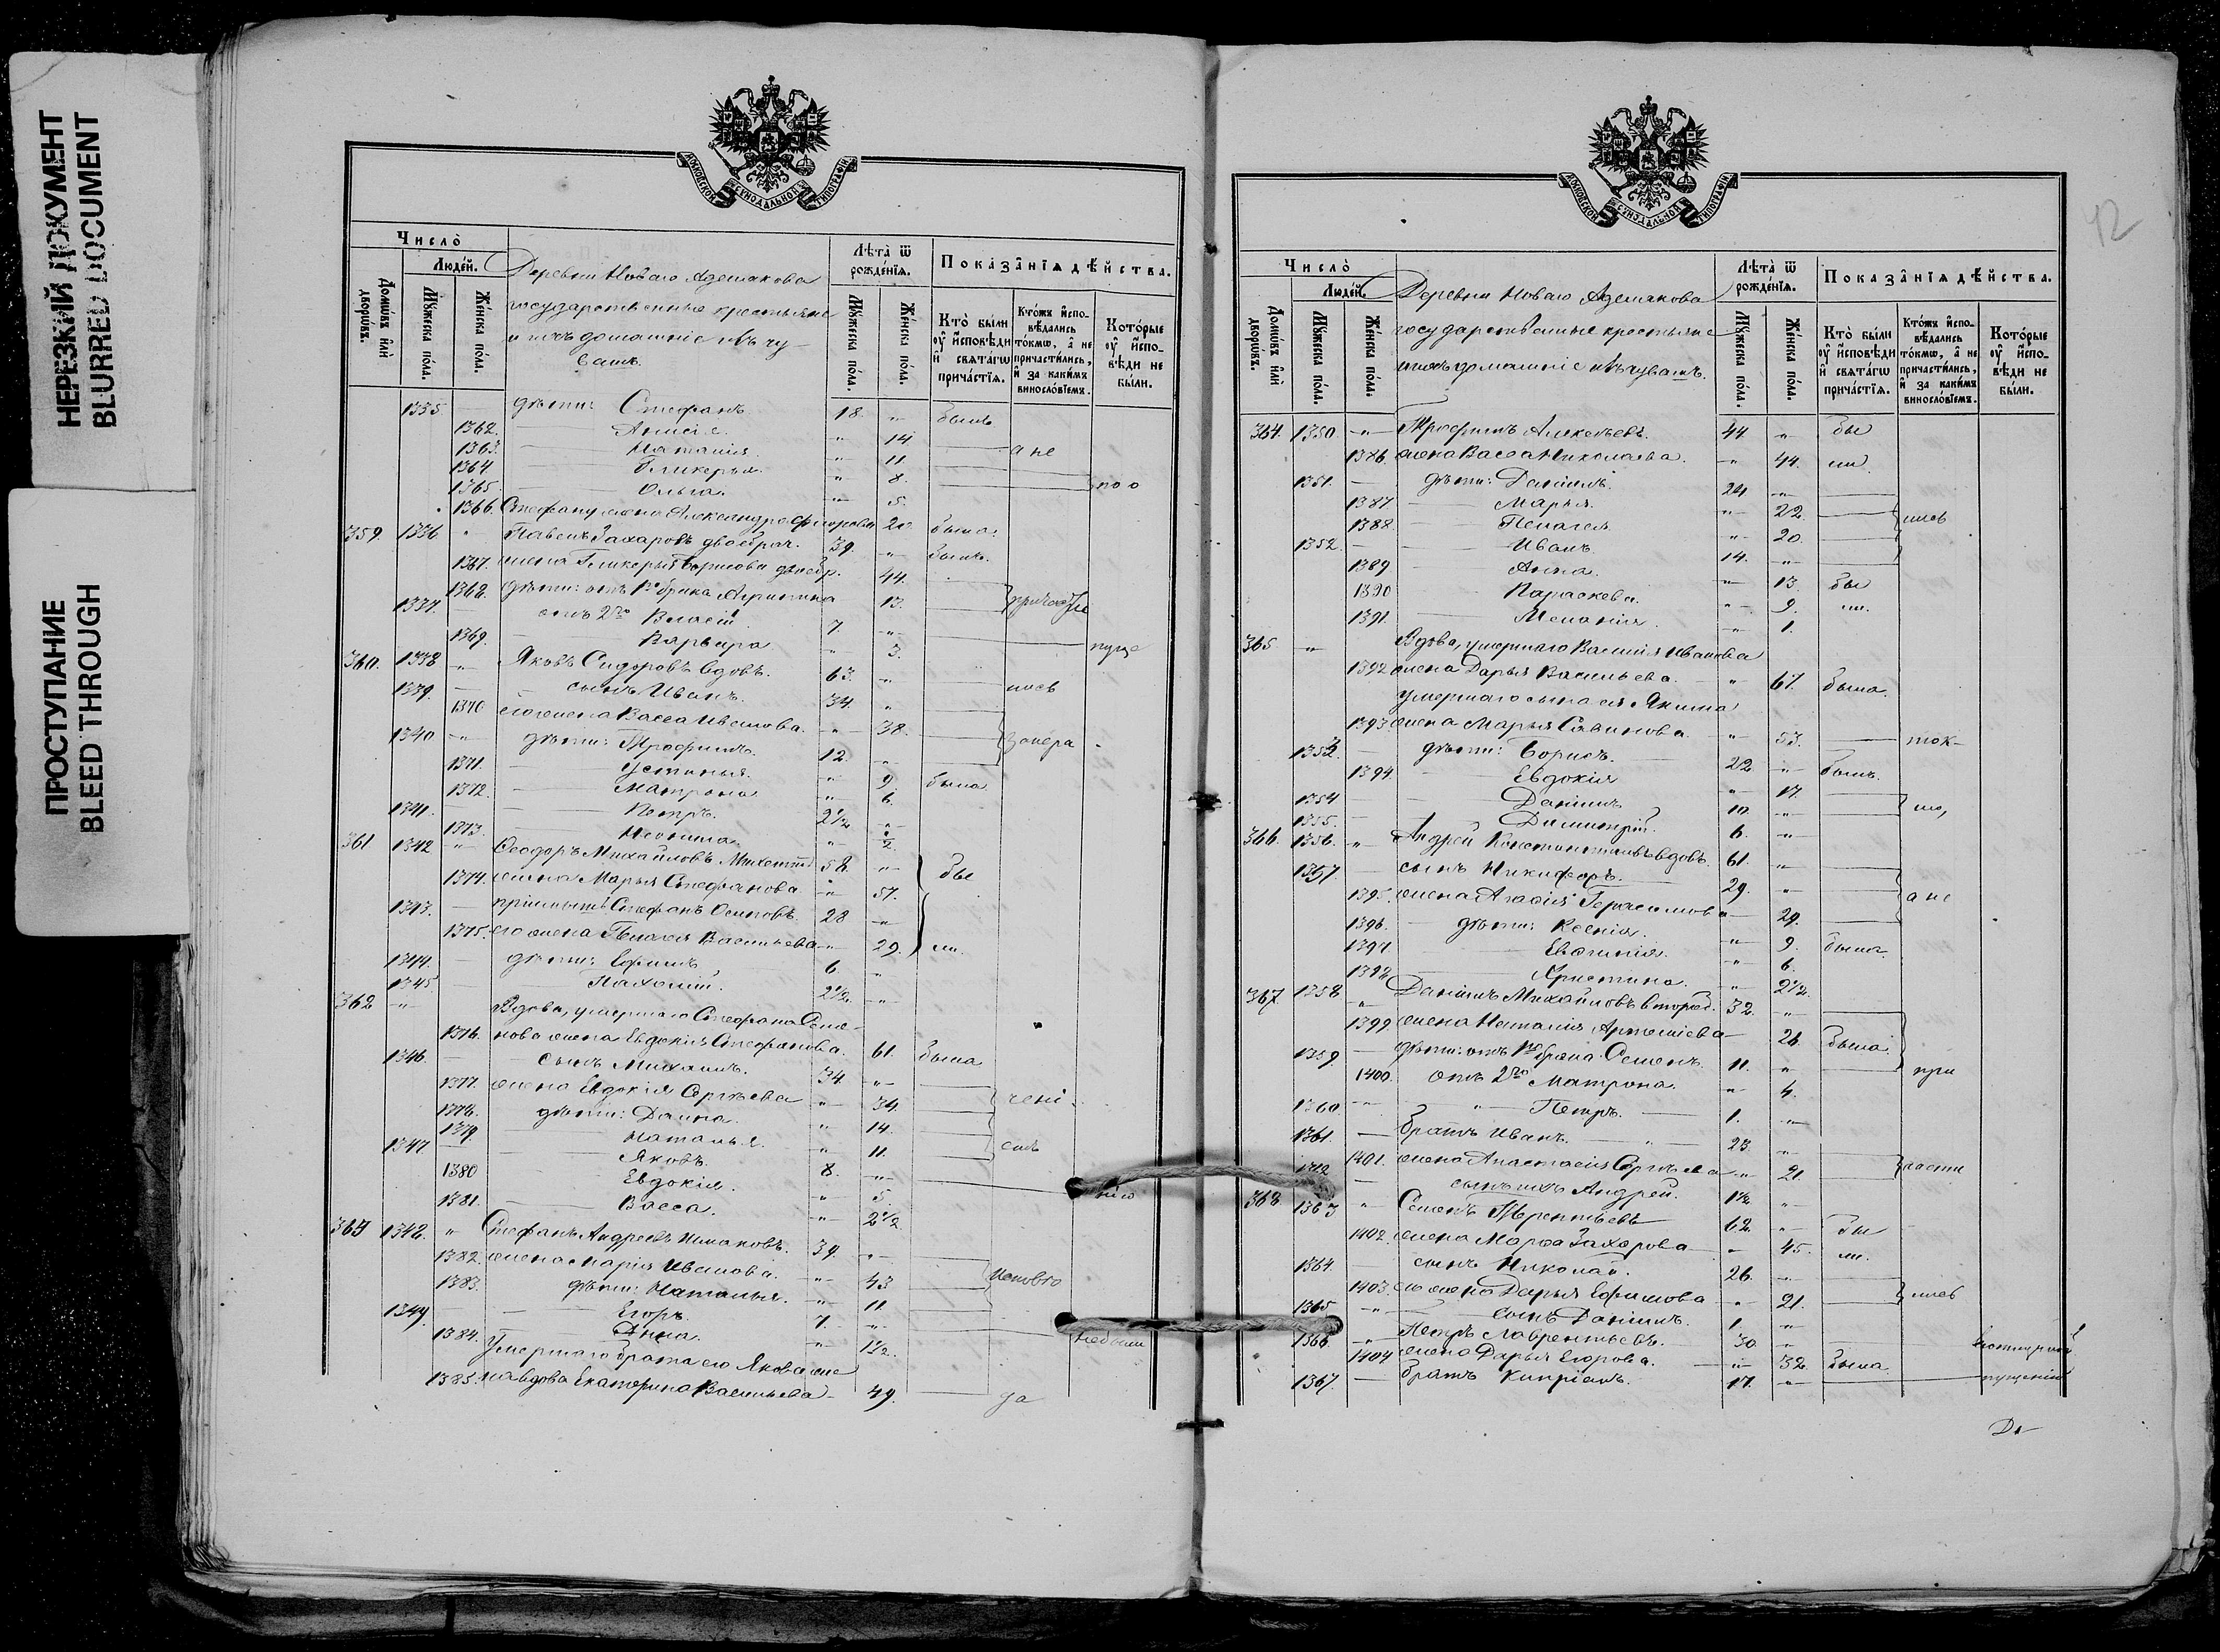 НЕРЕЗКИЙ ДОКУМЕНТ
BLURRED DOCUMENT
ПРОСТУПАНИЕ
BLEED THROUGH
МОСКОВСКОЙ СѴНОДАЛЬНОЙ ТИПОГРАФІИ
Число̀
Люде́й.
Домѡ́въ и҆лѝ дворѡ́въ.
Мꙋ́жеска по́ла.
Же́нска по́ла.
Деревни Новаго Адемакова
государственные крестьяне
и ихъ домашніе изъ чу-
вашъ.
Лѣта̀ ѿ рожде́нїѧ.
Мꙋ́жеска по́ла.
Же́нска по́ла.
Показа̂нїѧ дѣ́йства.
Кто̀ бы́ли ᲂу҆ и҆сповѣ́ди и҆ ст҃а́гѡ прича́стїѧ.
Кто́жъ и҆спо- вѣ́дались то́кмѡ, а҆ не причасти́лись, и҆ за каки́мъ винословїемъ.
Кото́рые ᲂу҆ и҆спо- вѣ́ди не бы́ли.
1335 — дѣти: Стефанъ 18. „ былъ
1362. — Анисія. „ 14
1363. — Наталія „ 11. а не
1364. — Гликерья „ 8.
1365 — Ольга. „ 5. по о
1366. Стефану жена Александра 20 была.
359. 1336 „ Павелъ Захаровъ двоебрач. 39. „ былъ.
1367. жена Гликерья Борисова двоебр. 44.
1368. дѣти: отъ 1го брака 13.
1337. отъ 2го Власій 7. „
1369. — Варвара „ 3. пуще
360. 1338 „ Яковъ Сидоровъ вдовъ. 63. „
1339. — сынъ Иванъ. 34. „ лись
1370 его жена Васса Иванова. „ 38.
1340 „ дѣти: Трофимъ. 12. „
1371. — Устинья. „ 9. была
1372. — Матрона „ 6.
1341. — Петръ. 2½ „
1373. — „ ½
361 1342 „ Ѳеодоръ Михайловъ 58. „ бы
1374. жена Марья Стефанова. „ 57.
1343. — Стефанъ Осиповъ. 28 „
1375. его жена Пелагея Васильева „ 29. ли.
1344. — дѣти: Ефимъ 6. „
1345. — Пахомій. 2½. „
362 „ Вдова, умершаго Стефана Семе-
1376. нова жена Евдокія Стефанова. 61. была
1346. — сынъ Михаилъ. 34. „
1377. жена Евдокія Сергѣева „ 34.
1378. дѣти: Домна. „ 14.
1379 — Наталья. „ 11.
1347. — Яковъ. 8. „
1380 — Евдокія. „ 5. нію
1381. — Васса. „ 2½
363 1348. „ Стефанъ Андреевъ 39. „
1382. жена Марія Иванова. „ 43
1383. дѣти: Наталья. „ 11
1349. — Егоръ. 7. „
1384. — Анна. „ 1½. не были
Умершаго брата его Якова же
1385. на вдова Екатерина Васильева 49.
да
42
МОСКОВСКОЙ СѴНОДАЛЬНОЙ ТИПОГРАФІИ
Число̀
Люде́й.
Домѡ́въ и҆лѝ дворѡ́въ.
Мꙋ́жеска по́ла.
Же́нска по́ла.
Деревни Новаго Адемакова
государственные крестьяне
и ихъ домашніе изъ чувашъ.
Лѣта̀ ѿ рожде́нїѧ.
Мꙋ́жеска по́ла.
Же́нска по́ла.
Показа̂нїѧ дѣ́йства.
Кто̀ бы́ли ᲂу҆ и҆сповѣ́ди и҆ ст҃а́гѡ прича́стїѧ.
Кто́жъ и҆спо- вѣ́дались то́кмѡ, а҆ не причасти́лись, и҆ за каки́мъ винословїемъ.
Кото́рые ᲂу҆ и҆спо- вѣ́ди не бы́ли.
364. 1350. „ Трофимъ Алексѣевъ. 44. „ бы
1386. жена Васса Николаева. „ 44. ли.
1351. — дѣти: Даніилъ. 24 „
1387. — Марья. „ 22.
1388. — Пелагея „ 20. лись
1352. — Иванъ. 14. „
1389 — Анна. „ 13. бы
1390 — Параскева. „ 9. ли.
1391. — Меланія. „ 1.
365 „ Вдова, умершаго Василія Иванова
1392 жена Дарья Васильева. „ 67. была.
умершаго сына ея Якима
1393. жена Марья Саввинова. „ 53. ток-
1353. — дѣти: Борисъ. 22. „ былъ.
1394. — Евдокія „ 17.
1354 — Даніилъ 10. „ мо,
1355. — Димитрій. 6. „
366. 1356. „ Андрей Константиновъ вдовъ. 61. „
1357. — сынъ Никифоръ. 29. „
1395. жена Агафія Герасимова 29. а не
1396. — дѣти: Ксенія. „ 9. была.
1397. — Евгенія. „ 6.
1398 — Христина. „ 2½.
367. 1358. „ Даніилъ Михайловъ 32. „
1399 жена Наталія Артеміева 26 была.
1359. — дѣти: отъ 1го брака Семенъ. 11. „
1400. отъ 2го Матрона. „ 4. при
1360 — „ Петръ. 1. „
1361. — братъ Иванъ. 23. „
1401. жена Анастасія Сергѣева „ 21. части
1362 — сынъ ихъ Андрей. 1½ „
368 1363 „ Семенъ Терентьевъ 62. „ бы
1402. жена Марѳа Захарова „ 45. ли.
1364. — сынъ Николай. 26. „
1403. его жена Дарья Ефимова „ 21. лись
1365 „ сынъ Даніилъ. 1. „
1366. „ Петръ Лаврентьевъ. 30. „
1404 жена Дарья Егорова. „ 32. была.
1367. — братъ Кипріанъ. 17. „ пущенію